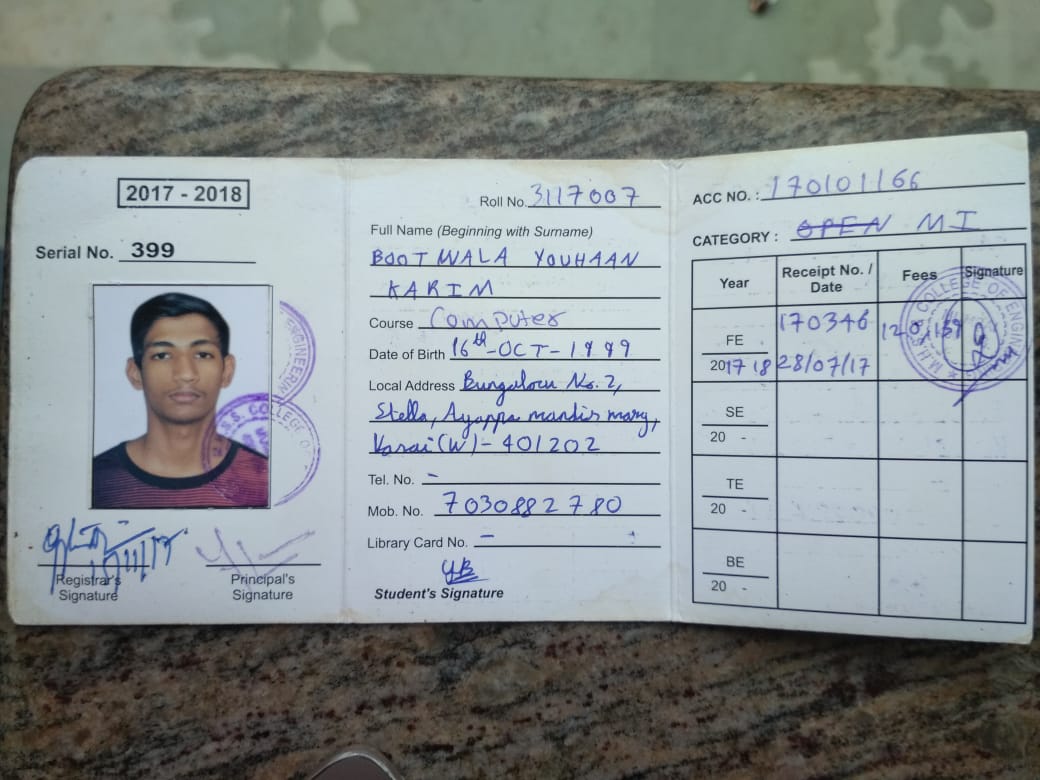 2017 - 2018
Serial No. 399
Registrar's
Signature
Principal's
Signature
Roll No. 3117007
Full Name (Beginning with Surname)
BOOTWALA YOUHAAN
KARIM
Course Computer
Date of Birth 16th-OCT-1999
Local Address Bungalow No. 2,
Stella, Ayappa mandir marg,
Vasai (W) - 401202
Tel. No. -
Mob. No. 7030882780
Library Card No. -
YB
Student's Signature
ACC NO. : 170101166
CATEGORY : OPEN MI
Year Receipt No. / Date Fees Signature
FE 2017 18 170346 28/07/17
SE 20 -
TE 20 -
BE 20 -